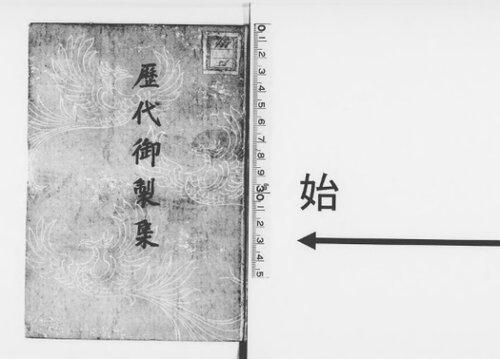 歷代御製集
始
0 1 2 3 4 5 6 7 8 9 30 1 2 3 4 5